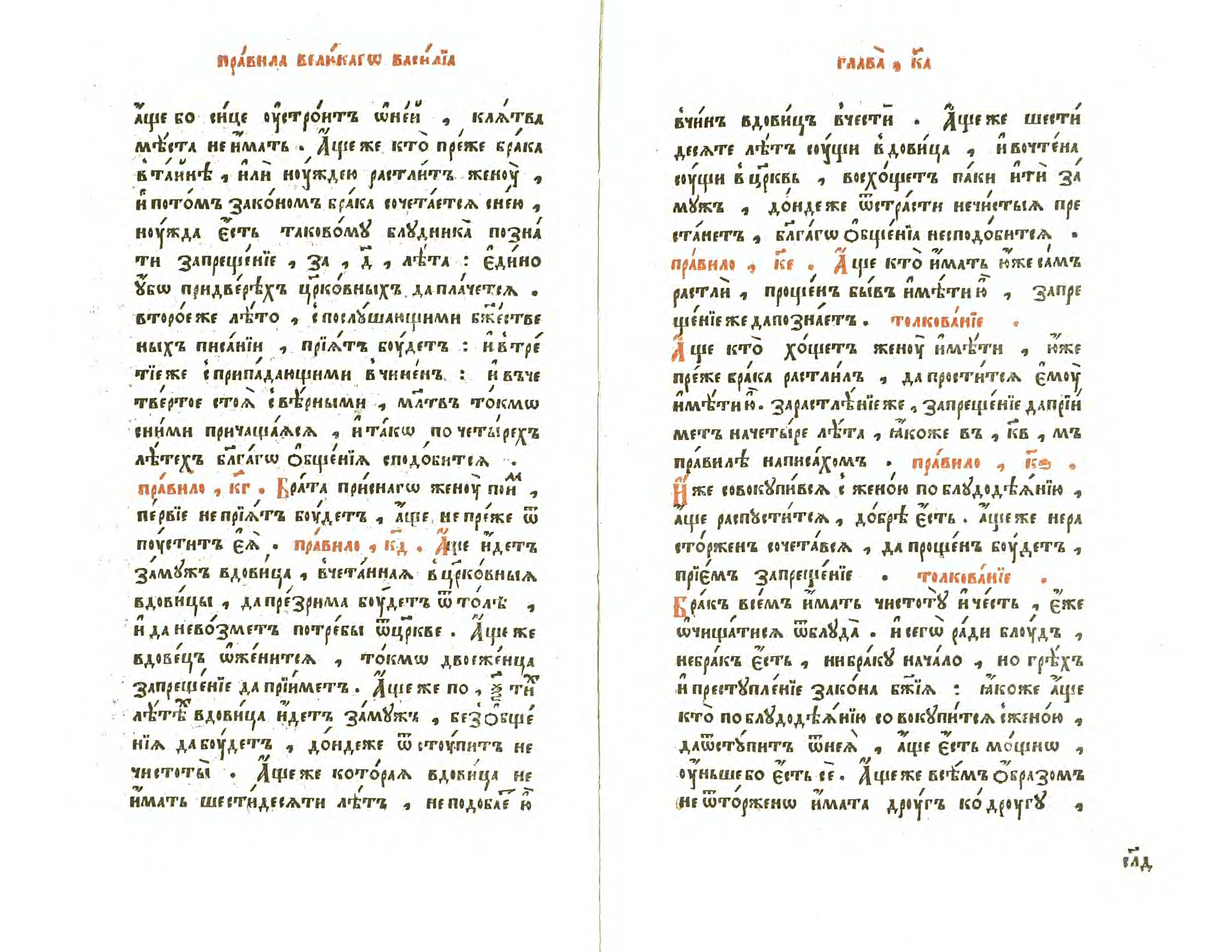 пра́вила вели́кагѡ васи́лїа
а҆́ще бо си́це ᲂу҆стро́итъ ѡ҆не́й , кла́тва
мѣ́ста не и҆́мать . А҆́ще же кто̀ пре́же бра́ка
в та́йнѣ , и҆лѝ ноу́ждею растли́тъ женоу̀ ,
и҆ пото́мъ зако́номъ бра́ка сочета́етсѧ с не́ю ,
ноу́жда є҆́сть таково́му блудника̀ позна́
ти запреще́нїе , за , д҃ , лѣ́та : є҆ди́но
у҆́бѡ придве́рѣхъ цр҃ко́вныхъ да пла́четсѧ .
второ́е же лѣ́то , с послу́шающими бж҃е́стве
ныхъ писа́нїи , прїѧ́тъ боу́детъ : и҆ в тре́
тїе же с припа́дающими вчине́нъ : и҆ въ че
тве́ртое стоѧ̀ с вѣ́рными , мл҃твъ то́кмѡ
с ни́ми причаща́ѧсѧ , и҆ та́кѡ по четы́рехъ
лѣ́техъ бл҃га́гѡ ѻ҆бще́нїѧ сподо́битсѧ .
пра́вило , кг҃ . Бра́та при́снагѡ женоу̀ пои́м ,
пе́рвїе не прїѧ́тъ боу́детъ , а҆́ще не пре́же ѿ
поу́ститъ є҆ѧ̀ . пра́вило , кд҃ . А҆́ще и҆́детъ
за́мужъ вдови́ца , вчета́ннаѧ в цр҃ко́вныѧ
вдови́цы , да пре́зрима боу́детъ ѿ то́лѣ ,
и҆ да не во́зметъ потре́бы ѿ цр҃кве . А҆́ще же
вдове́цъ ѡ҆же́нитсѧ , то́кмѡ двоеже́нца
запреще́нїе да прїи́метъ . А҆́ще же по , ѯ҃ ти́х
лѣ́тѣх вдови́ца и҆́детъ за́мужъ , без ѻ҆бще́
нїѧ да боу́детъ , до́ндеже ѿстоу́питъ не
чистоты̀ . А҆́ще же кото́раѧ вдови́ца не
и҆́мать шести́десѧти лѣ́тъ , не подоба́е ю҆̀
глава̀ , ка҃
в чи́нъ вдови́цъ вчестѝ . А҆́ще же шести́
десѧте лѣ́тъ соу́щи вдови́ца , и҆ вочте́на
соу́щи в цр҃квь , восхо́щетъ па́ки и҆тѝ за́
мужъ , до́ндеже ѿ стра́сти нечи́стыѧ пре
ста́нетъ , бл҃га́гѡ ѻ҆бще́нїѧ несподо́битсѧ .
пра́вило , ке҃ . А҆́ще кто̀ и҆́мать ю҆́же са́мъ
растлѝ , проще́нъ бы́въ и҆мѣ́ти ю҆̀ , запре
ще́нїе же да позна́етъ . толкова́нїе .
А҆́ще кто̀ хо́щетъ женоу̀ и҆мѣ́ти , ю҆́же
пре́же бра́ка растли́лъ , да прости́тсѧ є҆моу̀
и҆мѣ́ти ю҆̀ . за растлѣ́нїе же , запреще́нїе да прїи́
метъ на четы́ре лѣ́та , ꙗ҆́коже въ , кв҃ , мъ
пра́вилѣ написа́хомъ . пра́вило , кѕ҃ .
И҆́же совокупи́всѧ с жено́ю по блудодѣѧ́нїю ,
а҆́ще распу́ститсѧ , до́брѣ є҆́сть . а҆́ще же нера
сто́рженъ сочета́всѧ , да проще́нъ боу́детъ ,
прїе́мъ запреще́нїе . толкова́нїе .
Бра́къ всѣ́мъ и҆́мать чистоту̀ и҆ че́сть , є҆́же
ѡ҆чища́тисѧ ѿ блуда̀ . и҆ сегѡ̀ ра́ди блоу́дъ ,
небра́къ є҆́сть , ни бра́ку нача́ло , но грѣ́хъ
и҆ преступле́нїе зако́на бж҃їѧ : ꙗ҆́коже а҆́ще
кто̀ по блудодѣѧ́нїю совокупи́тсѧ с жено́ю ,
да ѿсту́питъ ѿ неѧ̀ , а҆́ще є҆́сть мо́щнѡ ,
ᲂу҆́ньше бо є҆́сть сѐ . А҆́ще же всѣ́мъ ѻ҆́бразомъ
не ѿто́рженѡ и҆́мата дроу́гъ ко дроу́гу ,
сл҃д